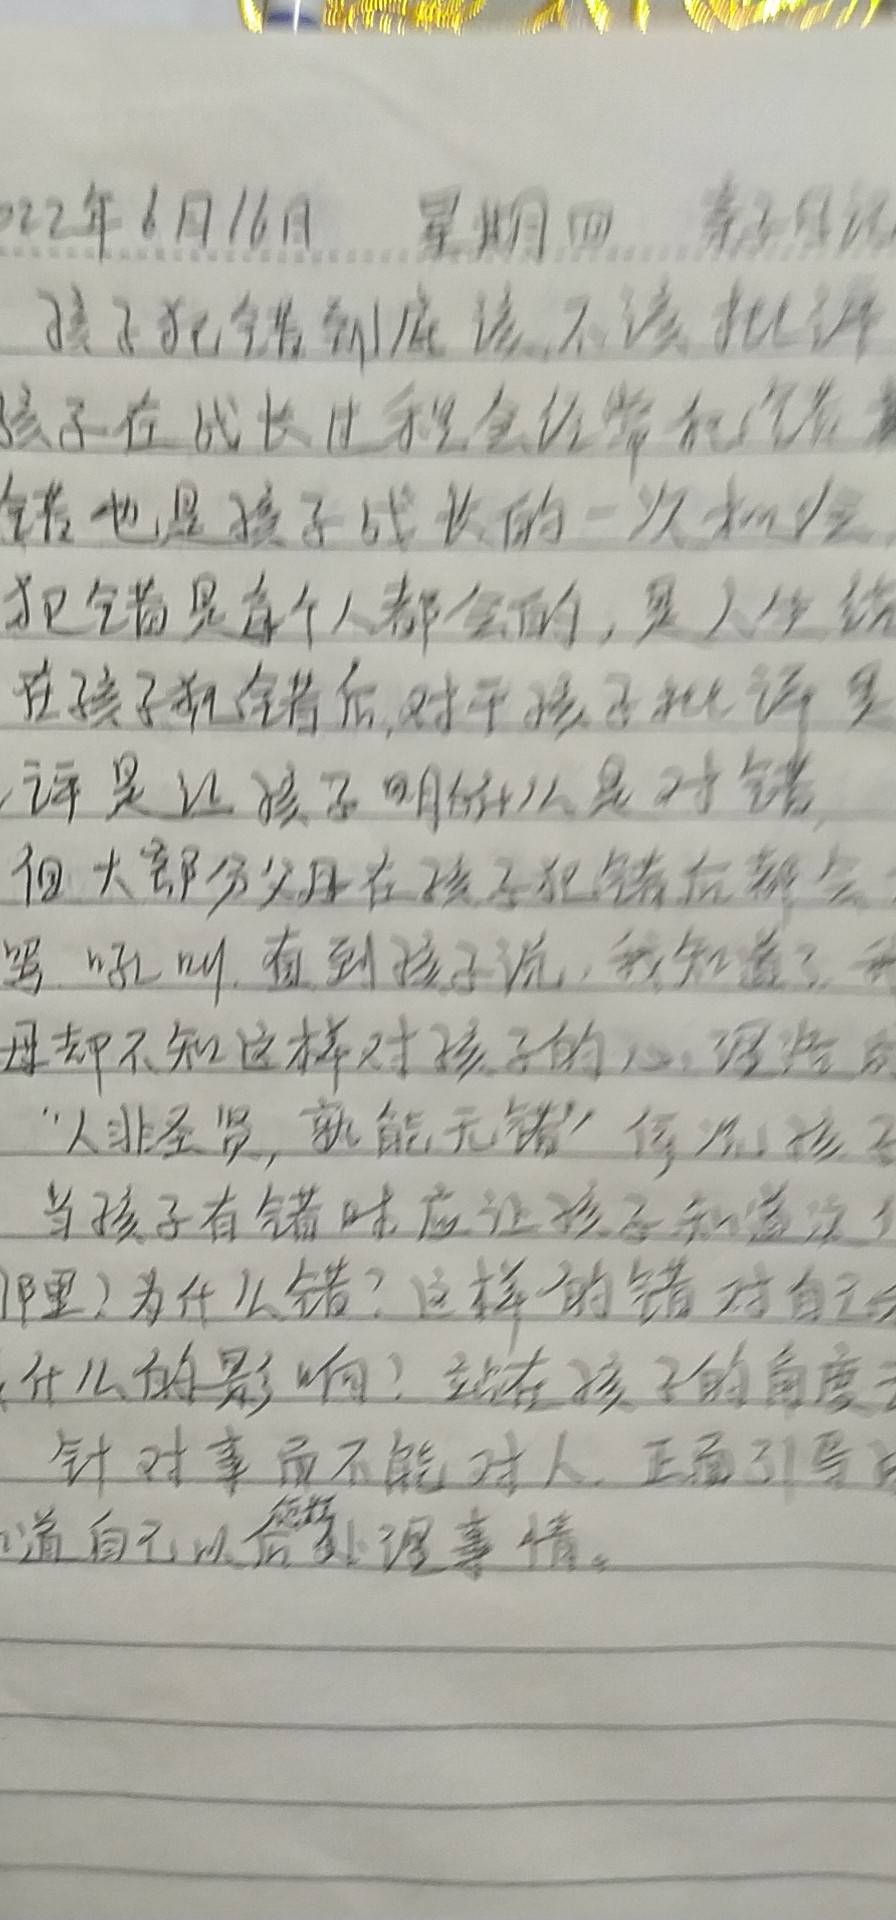 022年6月16日 星期四 亲子日记
孩子犯错到底该不该批评
孩子在成长过程会经常犯错
错也是孩子成长的一次机会
犯错是每个人都会的，是人生
在孩子犯错后,对于孩子批评是
评是让孩子明白什么是对错,
但大部分父母在孩子犯错后都会
骂.吼叫.直到孩子说,我知道了
母却不知这样对孩子的心理
“人非圣贤,孰能无错”何况孩子
当孩子有错时应让孩子知道
哪里?为什么错?这样的错对自己
什么的影响?站在孩子的角度
针对事而不能对人.正面引导
道自己以后怎样处理事情。